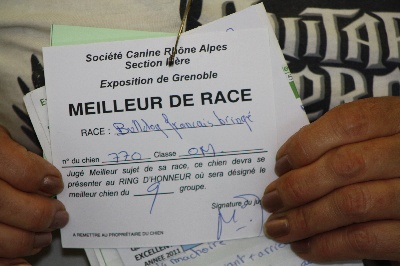 Société Canine Rhône Alpes
Section Isère
Exposition de Grenoble
MEILLEUR DE RACE
RACE : Bulldog francais bringé
n° du chien 770 Classe OM
Jugé Meilleur sujet de sa race, ce chien devra se
présenter au RING D'HONNEUR où sera désigné le
meilleur chien du 9 groupe.
Signature du
A REMETTRE AU PROPRIÉTAIRE DU CHIEN
EXCELLENT
ANNÉE 2011